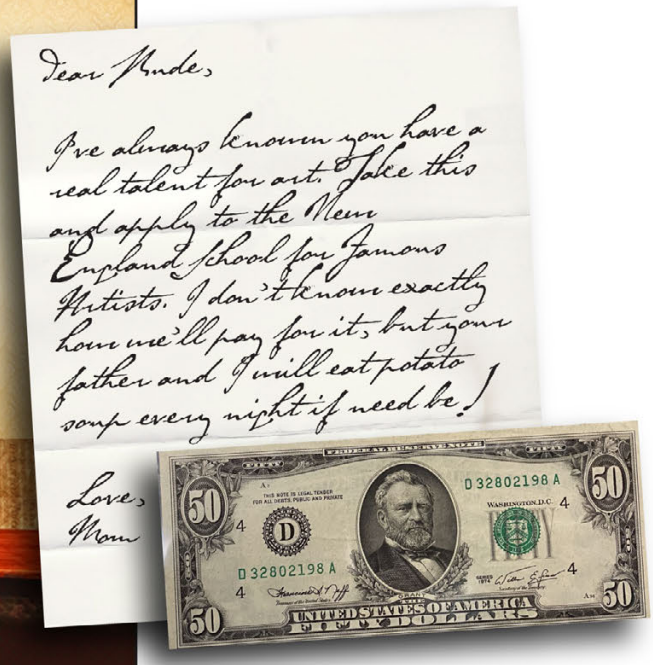 Dear Aude,
I've always known you have a
real talent for art. Take this
and apply to the New
England School for Famous
Artists. I don't know exactly
how we'll pay for it, but your
father and I will eat potato
soup every night if need be!
Love,
Mom
FEDERAL RESERVE NOTE
FIFTY
50
50
THIS NOTE IS LEGAL TENDER
FOR ALL DEBTS, PUBLIC AND PRIVATE
D 32802198 A
WASHINGTON, D.C.
4
4
D
D 32802198 A
4
4
SERIES
1974
GRANT
50
50
THE
UNITED STATES OF AMERICA
FIFTY DOLLARS